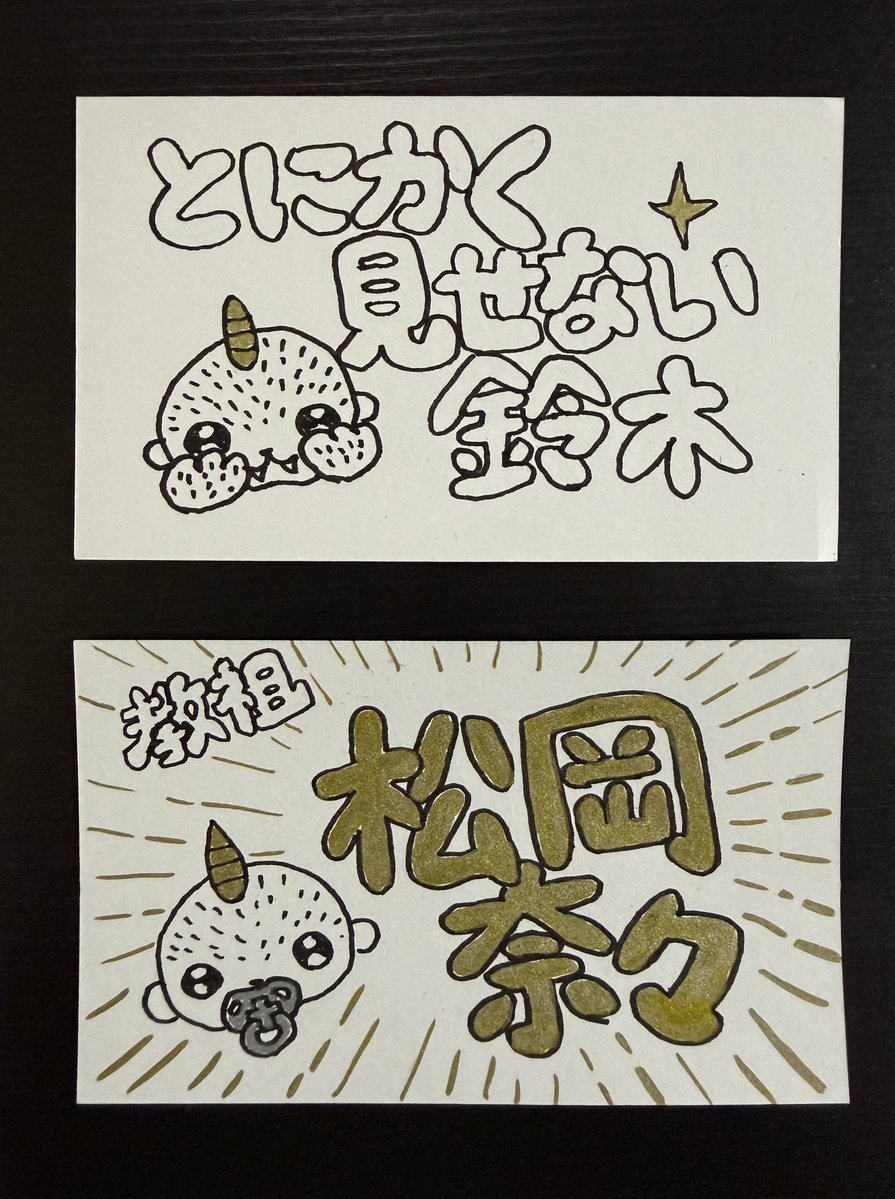 とにかく
見せない
鈴木
教祖
松岡
奈々